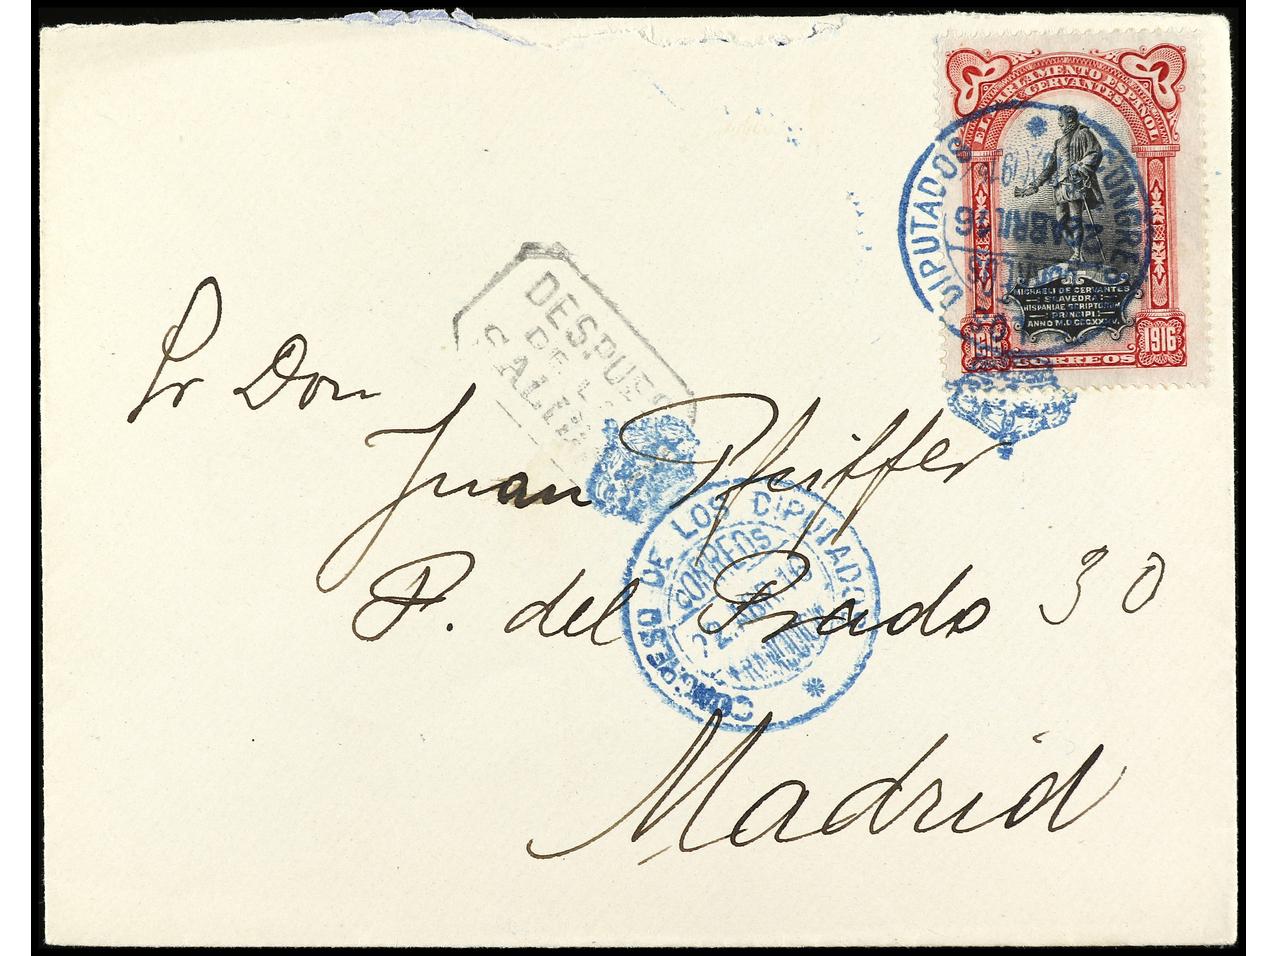 EL PARLAMENTO ESPAÑOL
A CERVANTES
MICHAELI DE CERVANTES
SAAVEDRA
HISPANIAE SCRIPTORUM
PRINCIPI
ANNO M.D.CCCXXXV.
1916 CORREOS 1916
CONGRESO DIPUTADOS
ABRIL 16
DESPUES
DE L
SALID
Sr Don
Juan Pfeiffer
P. del Prado 30
Madrid
CONGRESO DE LOS DIPUTADOS
CORREOS
22 ABR. 16
FRANQUICIA